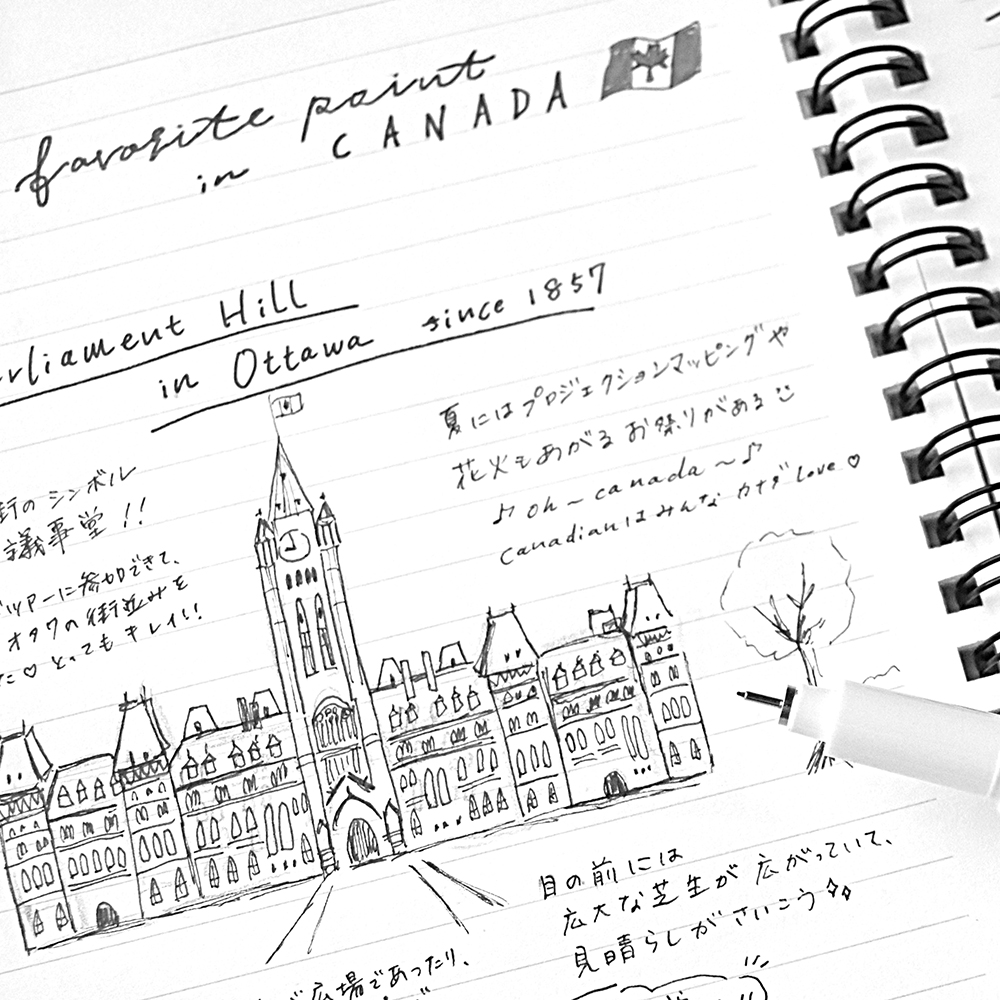 favorite point
in CANADA
Parliament Hill
in Ottawa since 1857
夏にはプロジェクションマッピングや
花火もあがるお祭りがある
♪ oh ~ canada ~ ♪
canadianはみんなカナダ love ♡
街のシンボル
議事堂!!
ツアーに参加できて、
オタワの街並みを
♡ とってもキレイ!!
目の前には
広大な芝生が広がっていて、
見晴らしがさいこう
広場であったり、